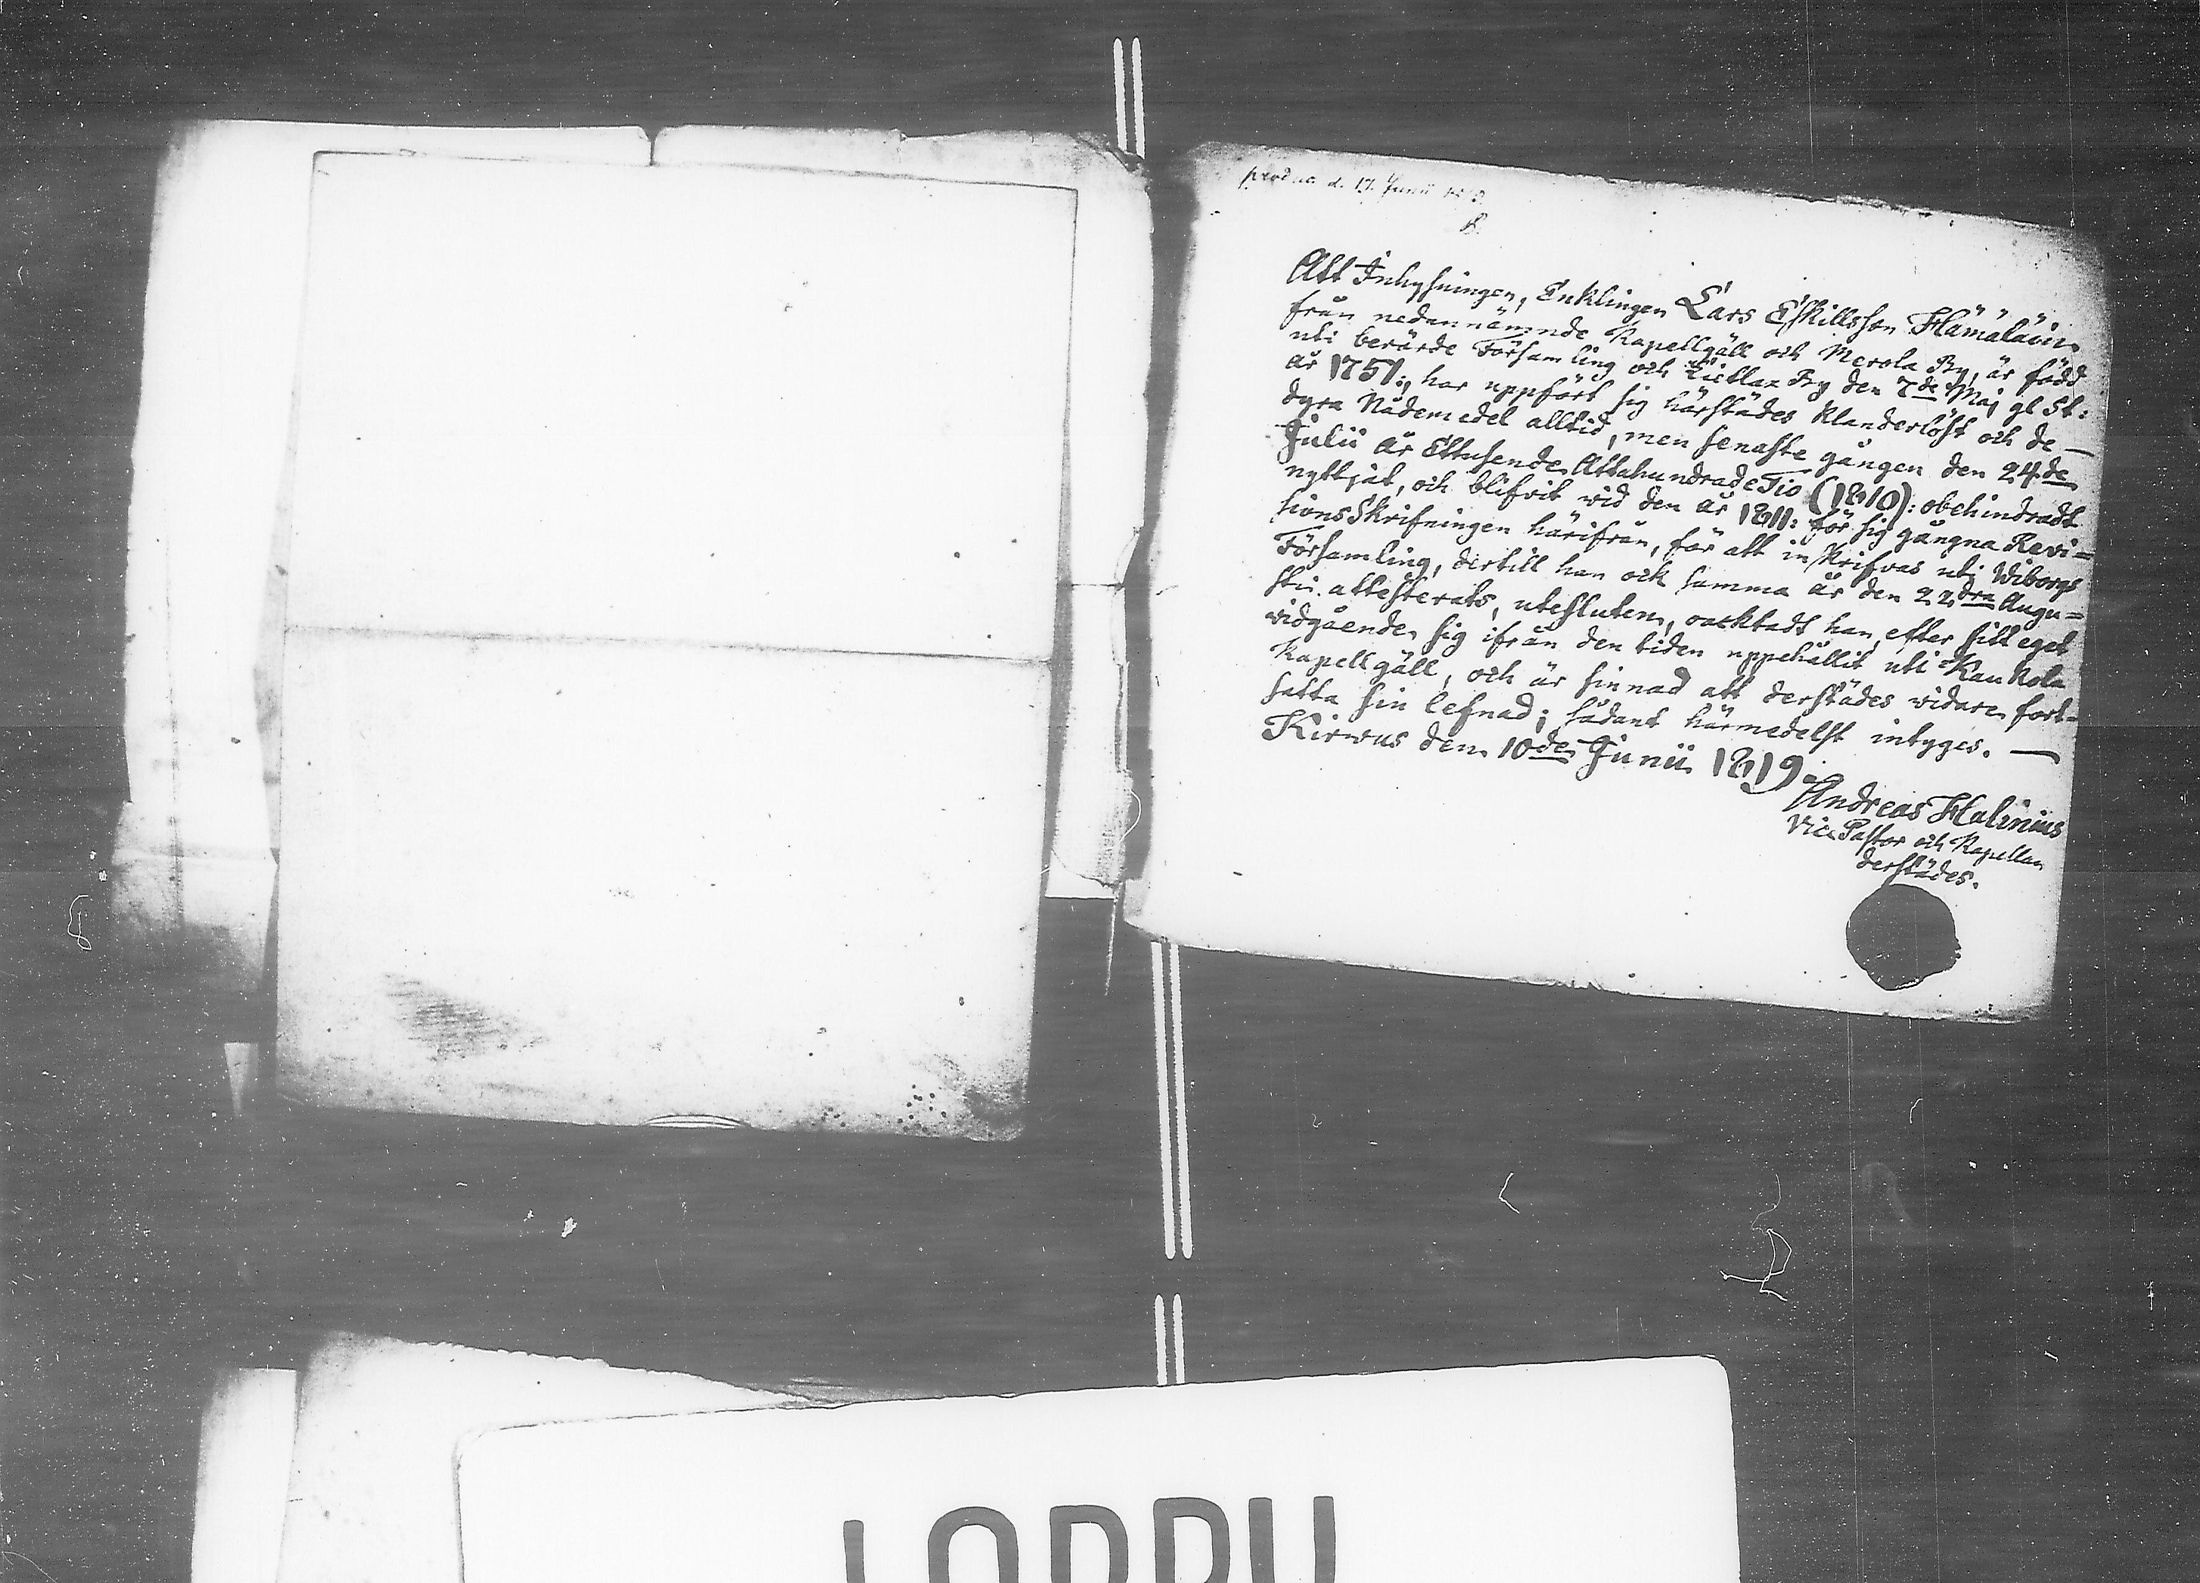 d. 17. Junii
Att Inhysningen, Enklingen Lars Eskillsson Hämäläin
från nedannämnde Kapellgäll och Merola By, är född
uti berörde Församling och Lietlax By den 7de Maj gl St:
år 1751:, har uppfört sig härstädes klanderlöst och de
dyra Nådemedel alltid, men senaste gången den 24de
Julii år Ettusende Åttahundrade Tio (1810): obehindradt
nyttjat, och blifvit wid den år 1811: för sig gångna Revi=
sions Skrifningen härifrån, för att inskrifvas uti Wiborgs
Församling, dertill han ock samma år den 22dra Augu=
sti attesterats, utesluten, oacktadt han, efter sitt eget
widgående sig ifrån den tiden uppehållit uti Kaukola
Kapellgäll, och är sinnad att derstädes widare fort-
satta sin lefnad; sådant härmedelst intyges. —
Kirwus den 10de Junii 1819.
Andreas Halinius
Vice Pastor och Kapellan
derstädes.
LOPPU